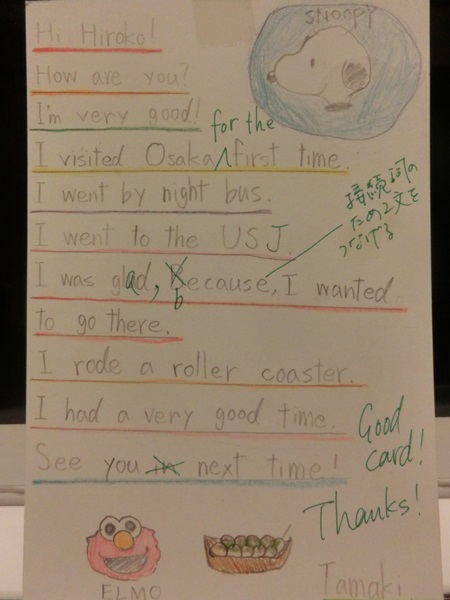 SNOOPY
Hi Hiroko!
How are you?
I'm very good!
for the
I visited Osaka first time.
I went by night bus.
接続詞の
ため2文を
つなげる
I went to the USJ.
I was glad, because, I wanted
to go there.
I rode a roller coaster.
I had a very good time.
Good
card!
See you in next time!
Thanks!
ELMO
Tamaki